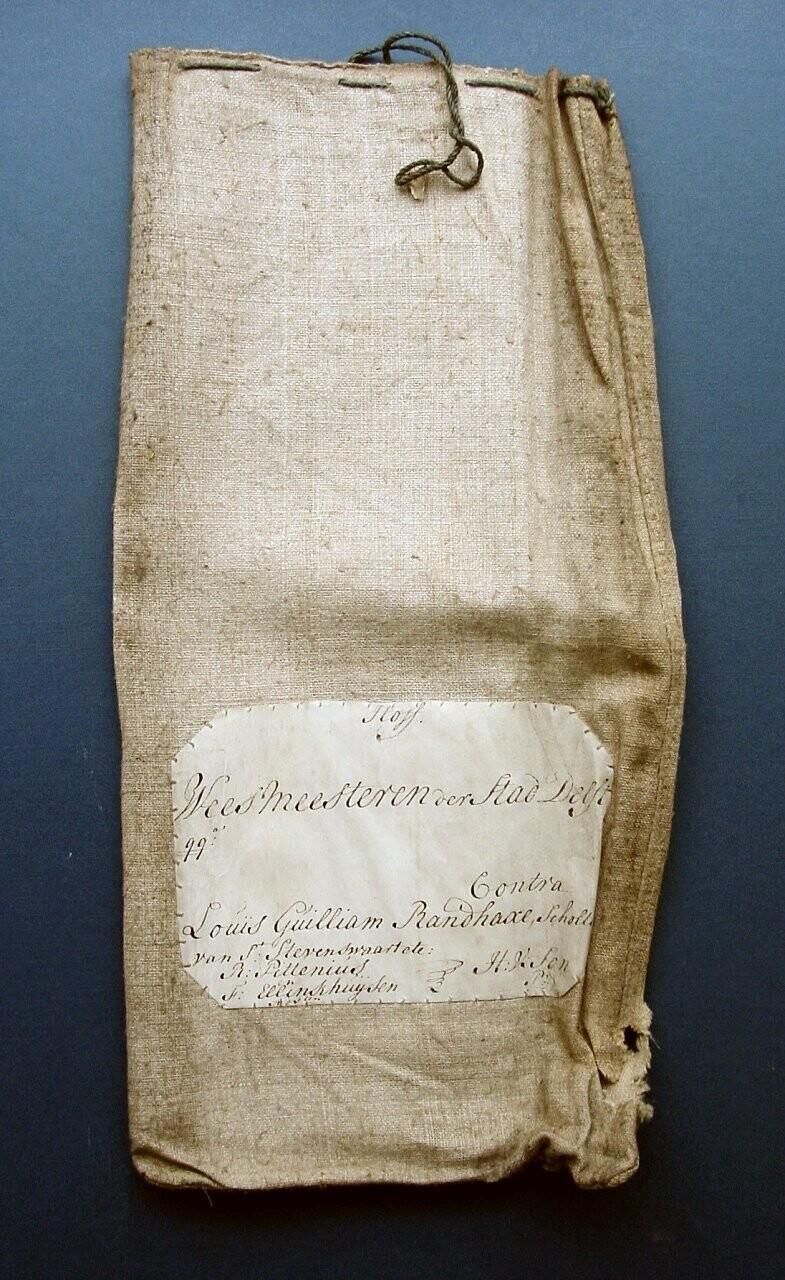 Hoff.
Weesmeesteren der Stad Delft
qqª
Contra
Louis Guilliam Randhaxe, Scholt
van St. Stevenswaart etc:
R: Pittenius
F: Ellinkhuysen